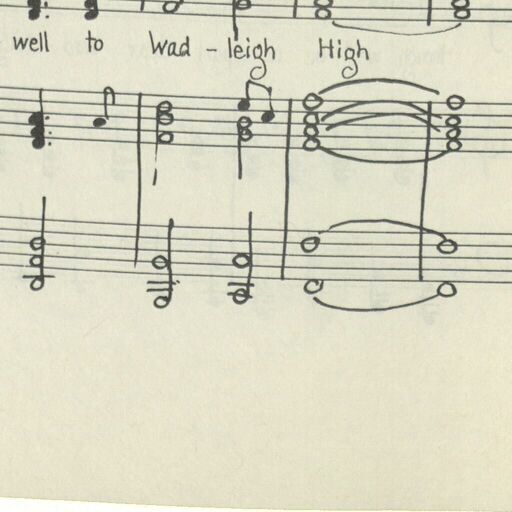 well to Wad - leigh High